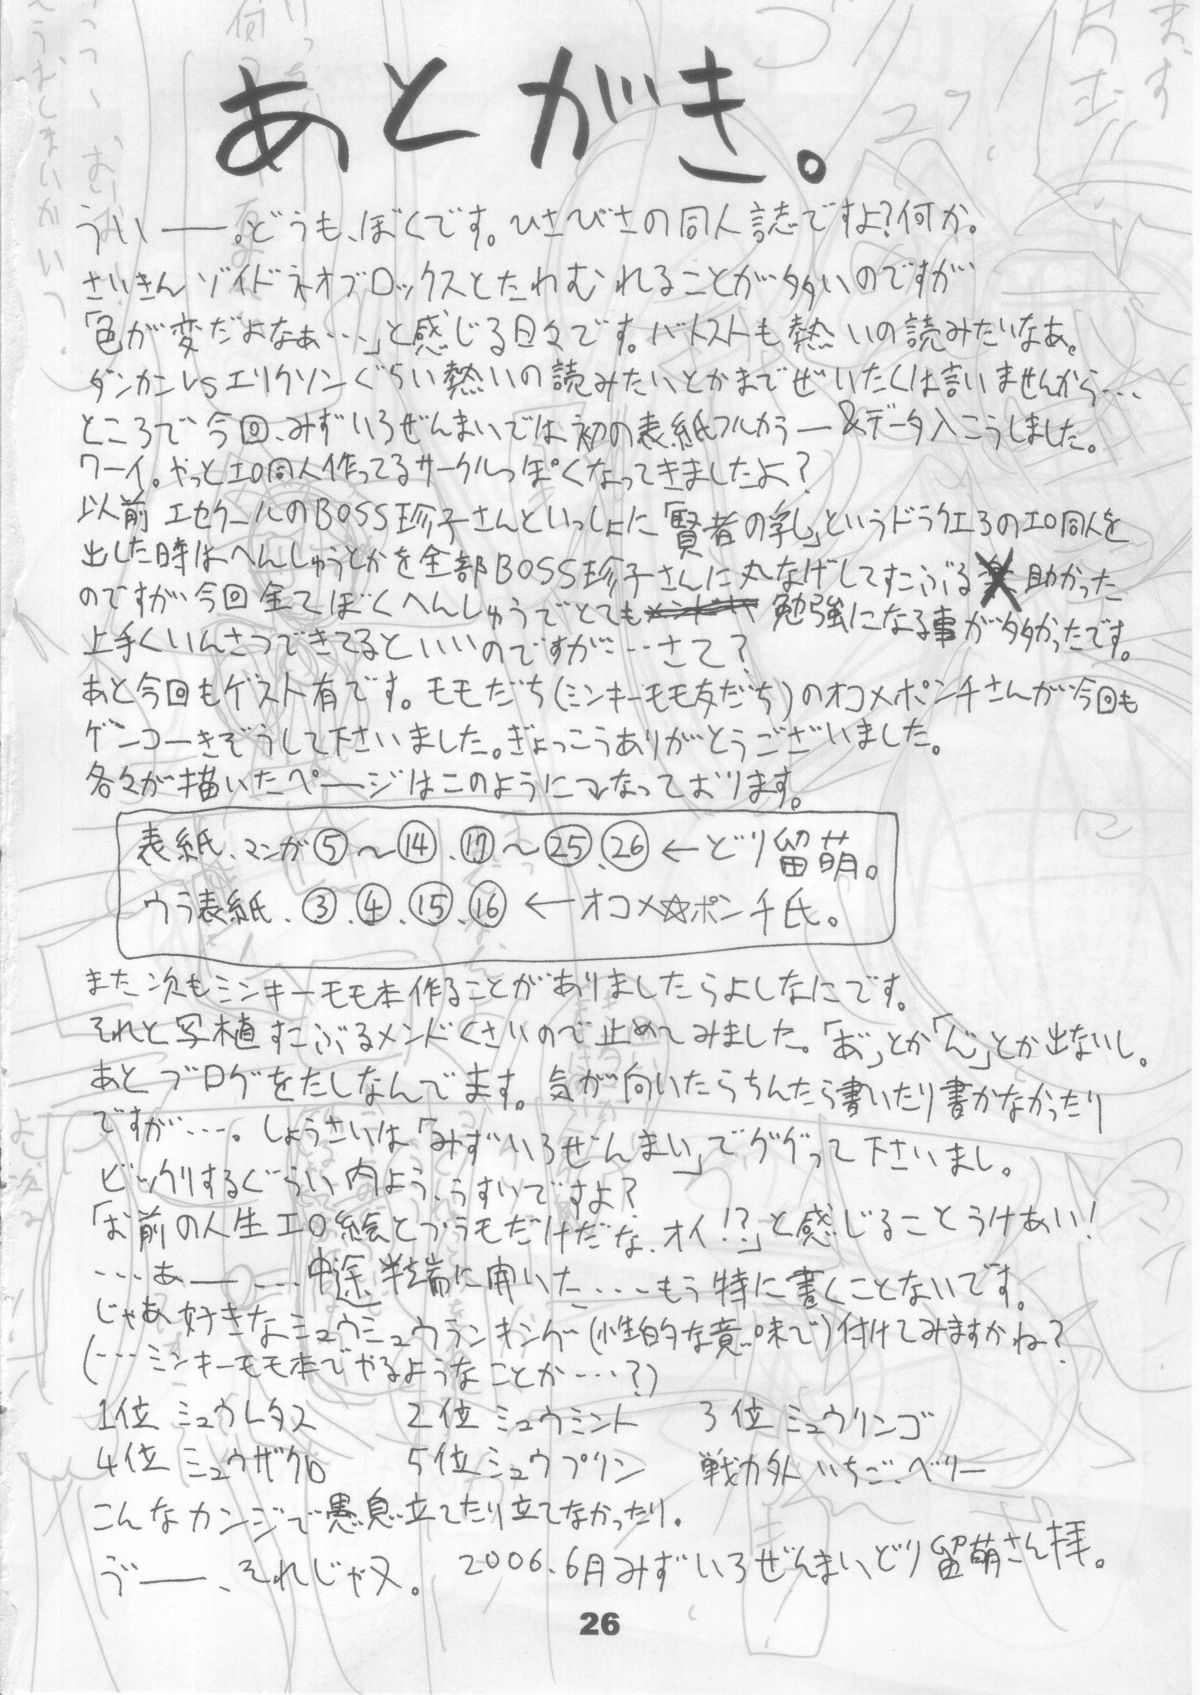 あとがき。
ういー。どうも、ぼくです。ひさびさの同人誌ですよ?何か。
さいきん ゾイドネオブロックスとたわむれることが多いのですが
「色が変だよなぁ…」と感じる日々です。バトストも熱いの読みたいなあ。
ダンカンvsエリクソンぐらい熱いの読みたいとかまでぜいたくは言いませんから…
ところで今回、みずいろぜんまいでは初の表紙フルカラー&データ入こうしました。
ワーイ。やっとエロ同人作ってるサークルっぽくなってきましたよ?
以前 エセクールのBOSS珍子さんといっしょに「賢者の乳」というドラクエ3のエロ同人を
出した時はへんしゅうとかを全部BOSS珍子さんに丸なげしてすこぶる 助かった
のですが今回全てぼくへんしゅうでとても 勉強になる事が多かったです。
上手くいんさつできてるといいのですが…さて?
あと今回もゲスト有です。モモだち(ミンキーモモ友だち)のオコメポンチさんが今回も
ゲンコーきぞうして下さいました。ぎょっこうありがとうございました。
各々が描いたページはこのようになっております。
表紙、マンガ⑤〜⑭、⑰〜㉕、㉖←どり留萌。
ウラ表紙、③、④、⑮、⑯←オコメ☆ポンチ氏。
また次もミンキーモモ本作ることがありましたらよしなにです。
それと写植すこぶるメンドくさいので止めてみました。「あ゛」とか「ん゛」とか出ないし。
あとブログをたしなんでます。気が向いたらちんたら書いたり書かなかったり
ですが…。しょうさいは「みずいろぜんまい」でググって下さいまし。
ビックリするぐらい内よう、うすいですよ?
「お前の人生エロ絵とプラモだけだな、オイ!?」と感じることうけあい!
…あー…中途半端に開いた…もう特に書くことないです。
じゃあ好きなミュウミュウランキング(性的な意味で)付けてみますかね?
(…ミンキーモモ本でやるようなことか…?)
1位 ミュウレタス 2位 ミュウミント 3位 ミュウリンゴ
4位 ミュウザクロ 5位 ミュウプリン 戦力外 いちご、ベリー
こんなカンジで愚息立てたり立てなかったり。
う゛ー、それじゃヌ。 2006.6月みずいろぜんまい、どり留萌さん拝。
26